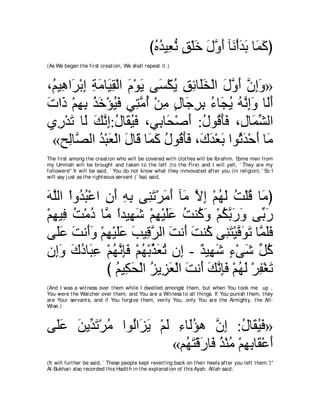 (كَمَا بَدَأْنَآ أَوَّلَ خَلْقٍ نُّعِيدُهُ)
(As We began the first creation, We shall repeat it.)
«وَإِنَّ أَوَّلَ الْخَلَائِقِ يُكْسَى يَوْمَ الْقِيَامَةِ إِبْرَاهِيمُ،
أَلَا وَإِنَّهُ يُجَاءُ بِرِجَالٍ مِنْ أُمَّتِي فَيُؤْخَذُ بِهِمْ ذَاتَ
الشِّمَالِ، فَأَقُولُ: أَصْحَابِي، فَيُقَالُ:إِنَّكَ لَا تَدْرِي
مَا أَحْدَثُوا بَعْدَكَ، فَأَقُولُ كَمَا قَالَ الْعَبْدُ الصَّالِحُ»
The first among the creation who will be covered with clothes will be Ibrahim. Some men from my Ummah will be brought and taken to the left (to the Fire) and I will yell, `They are my followers!' It will be said, `You do not know what they innovated after you (in religion).' So I will say just as the righteous servant (`Isa) said,
(مَا قُلْتُ لَهُمْ إِلاَّ مَآ أَمَرْتَنِى بِهِ أَنِ اعْبُدُواْ اللَّهَ
رَبِّى وَرَبَّكُمْ وَكُنتُ عَلَيْهِمْ شَهِيداً مَّا دُمْتُ فِيهِمْ
فَلَمَّا تَوَفَّيْتَنِى كُنتَ أَنتَ الرَّقِيبَ عَلَيْهِمْ وَأَنتَ عَلَى
كُلِّ شَىْءٍ شَهِيدٌ - إِن تُعَذِّبْهُمْ فَإِنَّهُمْ عِبَادُكَ وَإِن
تَغْفِرْ لَهُمْ فَإِنَّكَ أَنتَ الْعَزِيزُ الْحَكِيمُ )
(And I was a witness over them while I dwelled amongst them, but when You took me up, You were the Watcher over them; and You are a Witness to all things. If You punish them, they are Your servants, and if You forgive them, verily You, only You are the Almighty, the All-Wise.)
فَيُقَالُ: إِنَّ هؤُلَاءِ لَمْ يَزَالُوا مُرْتَدِّينَ عَلَى
أَعْقَابِهِمْ مُنْذُ فَارَقْتَهُم»
(It will further be said, `These people kept reverting back on their heels after you left them.')'' Al-Bukhari also recorded this Hadith in the explanation of this Ayah. Allah said;